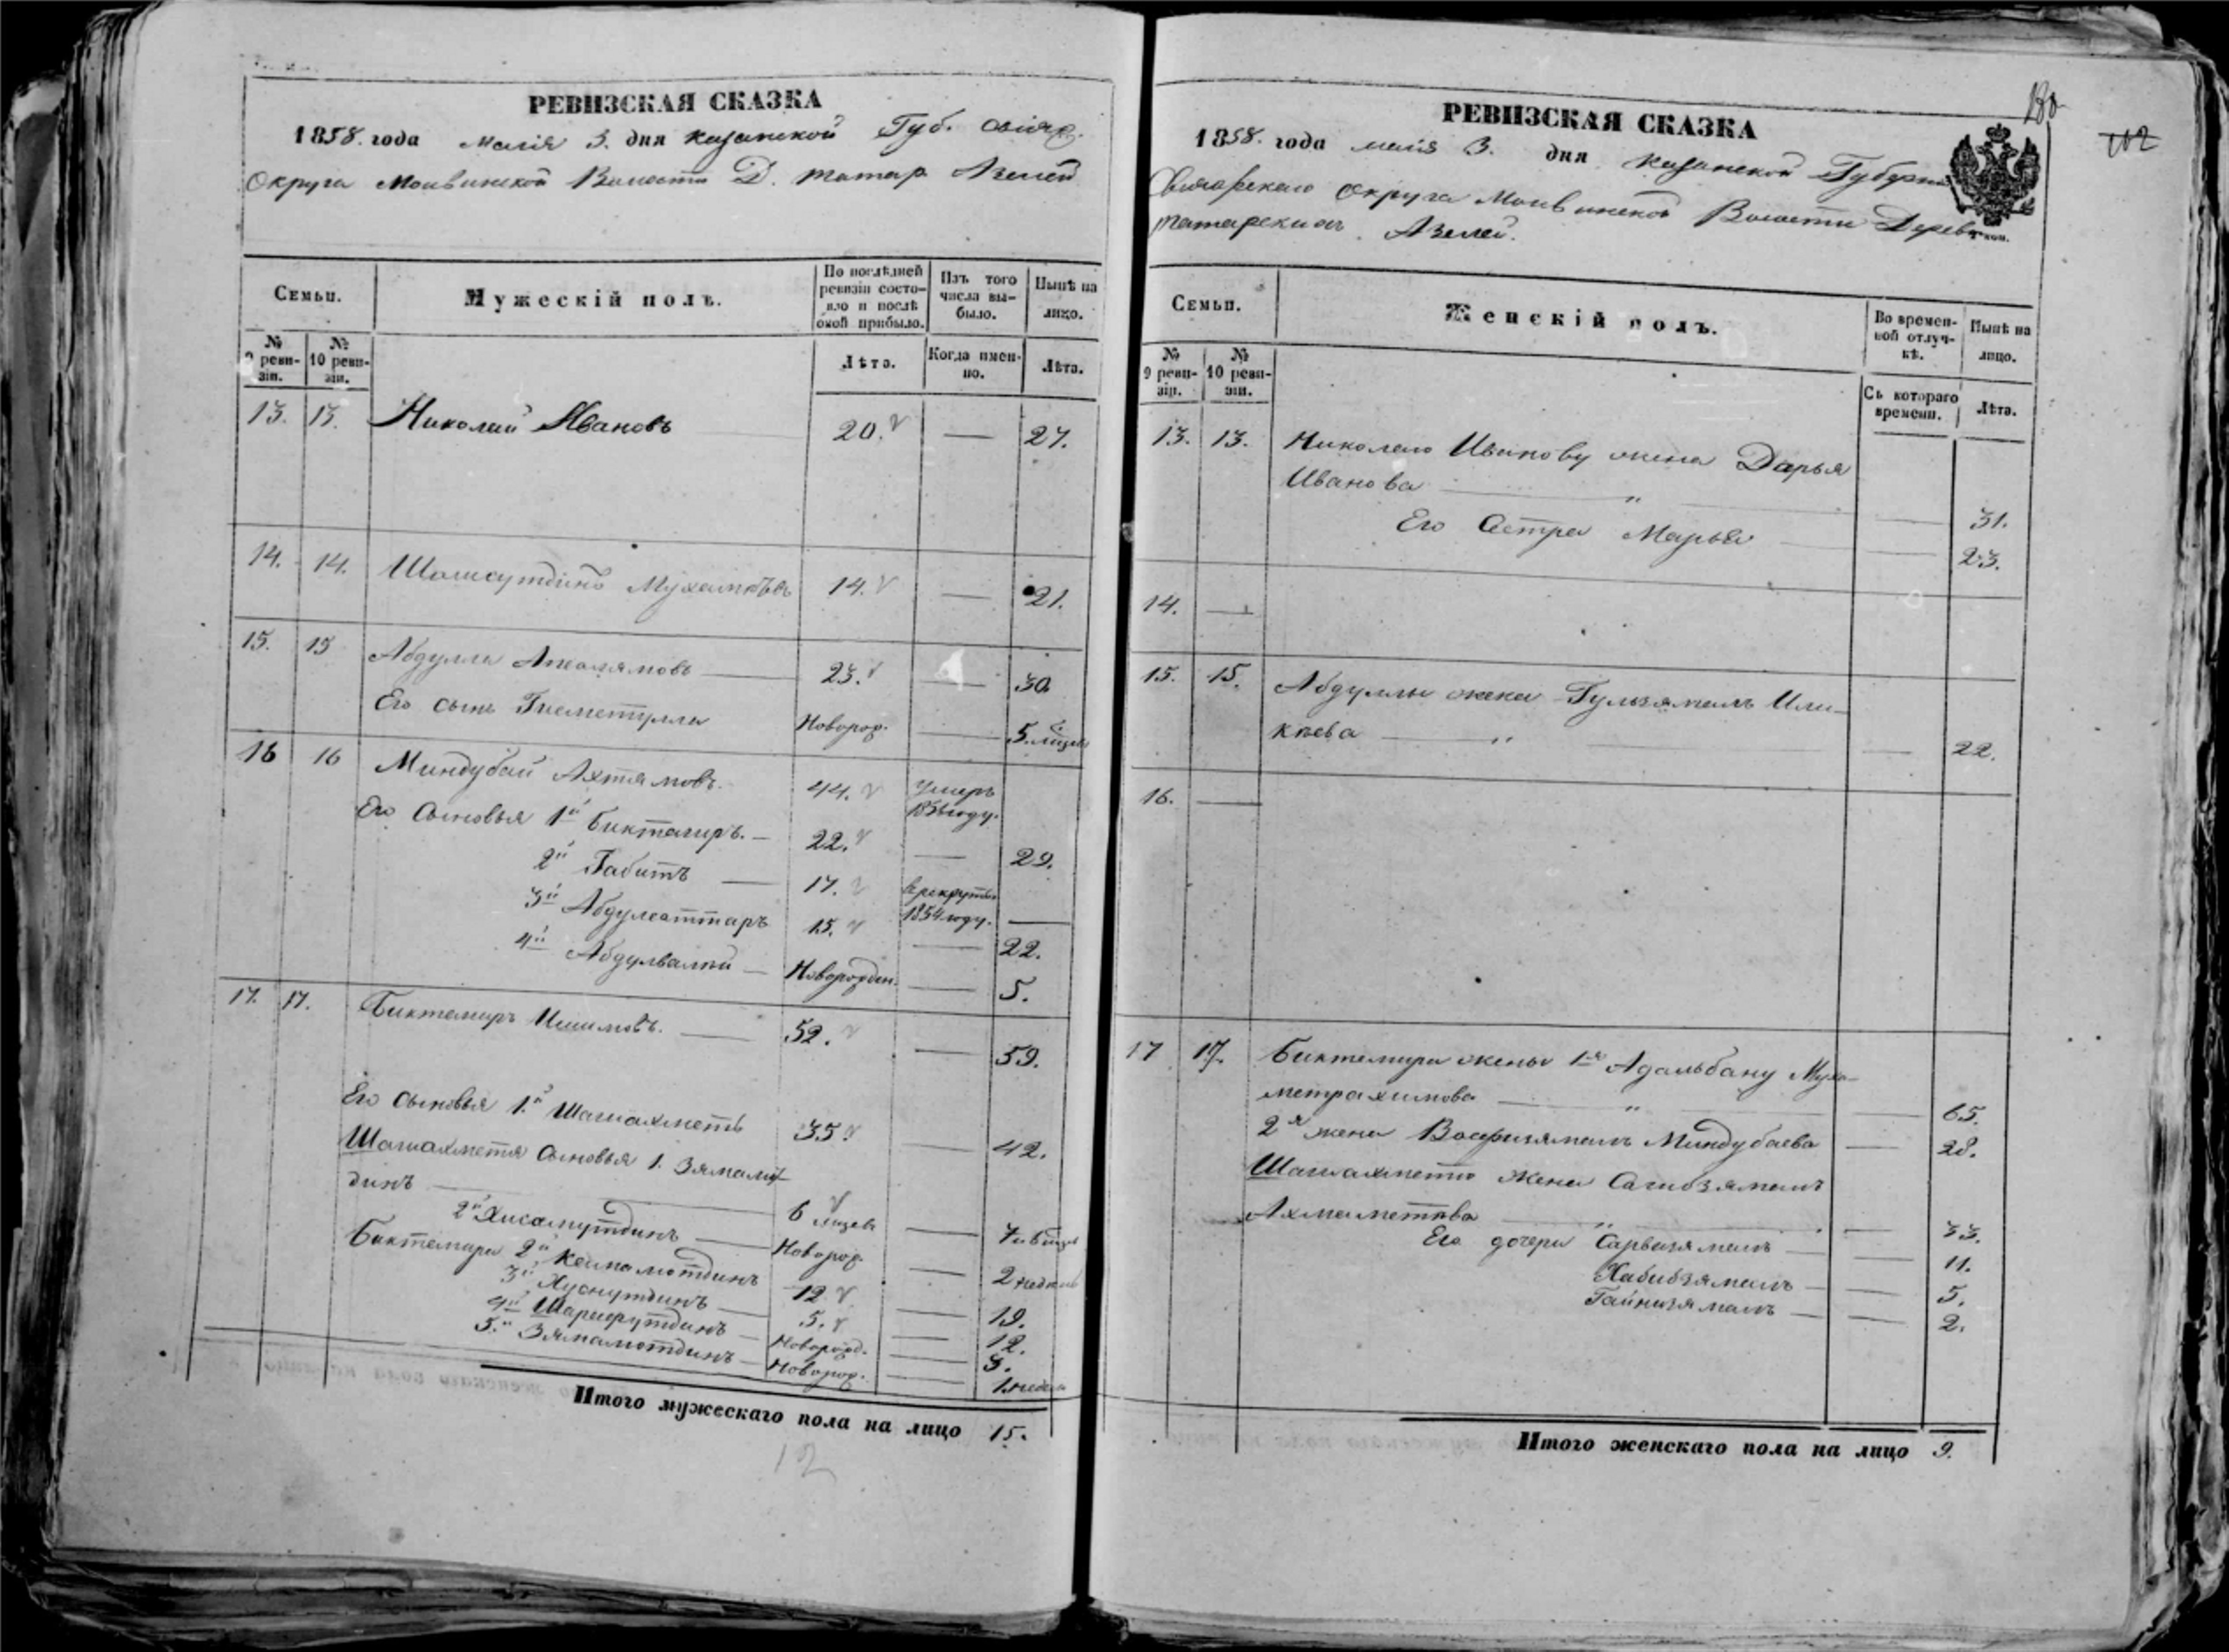 РЕВИЗСКАЯ СКАЗКА
1858. года маiя 3. дня Казанской Губ. Свiяж.
Округа Волости Д. Татар Азелей
Семьи.
Мужескiй полъ.
По послѣдней ревизiи состояло и послѣ оной прибыло.
Изъ того числа выбыло.
Нынѣ на лицо.
№ 9 ревизiи.
№ 10 ревизiи.
Лѣта.
Когда именно.
Лѣта.
13. 13. Николай Ивановъ 20. — 27.
14. 14. Шамсутдинъ 14. — 21.
15. 15 Абдулла 23. — 30
Его сынъ Новорож. — 5.
16 16 Миндубай Ахтямовъ. 44. Умеръ
году.
Его Сыновья 1й Биктагиръ. — 22. — 29.
2й Габитъ — 17. в рекруты
1854 году. —
3й Абдулсаттаръ 15. — 22.
4й Абдулвалѣй — Новорожден. — 5.
17. 17. Биктемиръ Ишимовъ. — 52. — 59.
Его Сыновья 1.й Шагиахметъ 35. — 42.
Шагиахметя Сыновья 1. Зямалут-
динъ — 6 мѣсяц. — 7 и 6 мѣсяц
2й Хисамутдинъ — Новорож. — 2 недѣль
Биктемира 2й Камалотдинъ 12 — 19.
3й Хуснутдинъ — 5. — 12.
4й Шарифутдинъ — Новорожд. —
5.й Зямалотдинъ — Новорож. — 1 недѣля
Итого мужескаго пола на лицо 15.
12
180
102
РЕВИЗСКАЯ СКАЗКА
1858. года маiя 3. дня Казанской Губернiи
Свiяжскаго Округа Волости Деревни
Татарскихъ Азелей.
Семьи.
Женскiй полъ.
Во временной отлучкѣ.
Нынѣ на лицо.
№ 9 ревизiи.
№ 10 ревизiи.
Съ котораго времени.
Лѣта.
13. 13. Николаю Иванову жена Дарья
Иванова — " — 31.
Его Сестра Марья — 23.
14. —
15. 15. Абдуллы жена Гульзямалъ Или-
кѣева — " — 22.
16. —
17 17. Биктемира жены 1я Адальбану Муха-
метрахимова — " — 65.
2я жена Миндубаева — 28.
Шагиахметя жена Сагибзямалъ
Ахмаметѣва — " — 33.
Его дочери Сарвизямалъ — 11.
Хабибзямалъ — 5.
Гайнизямалъ — 2.
Итого женскаго пола на лицо 9.